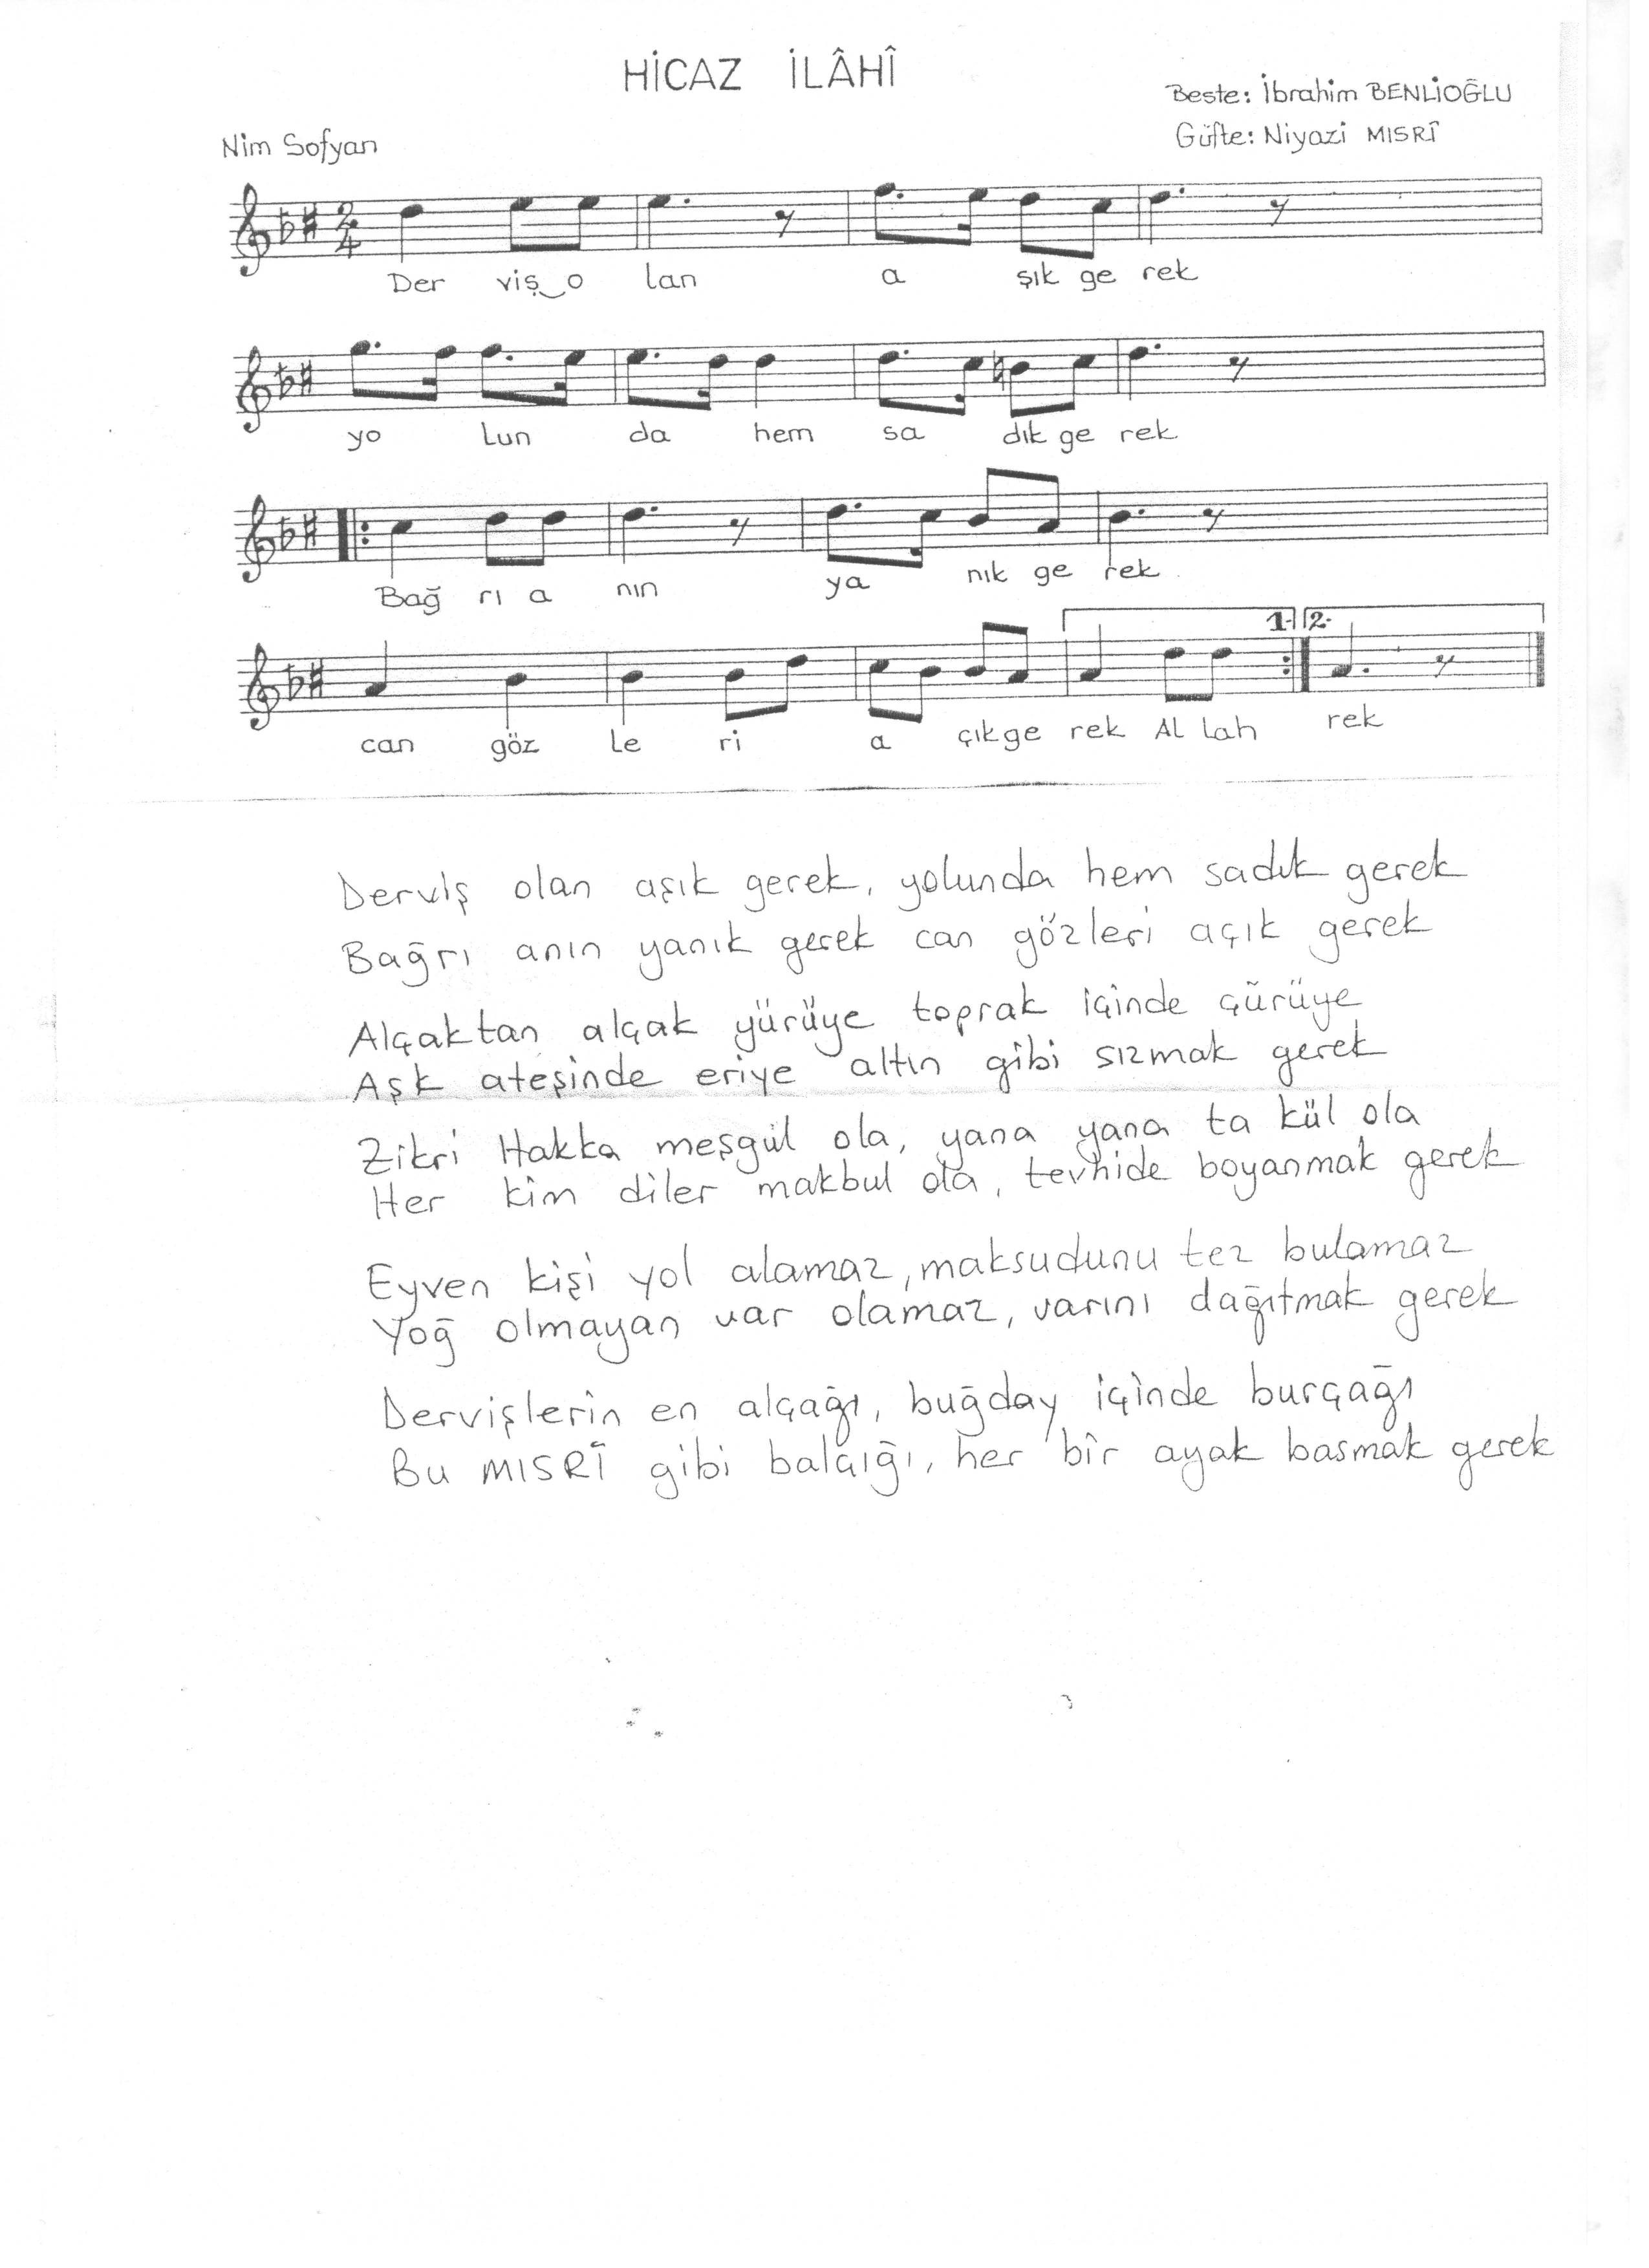 HİCAZ İLÂHÎ
Beste: İbrahim BENLİOĞLU
Nim Sofyan
Güfte: Niyazi MISRÎ
2
4
Der viş‿o lan a şık ge rek
yo lun da hem sa dık ge rek
Bağ rı a nın ya nık ge rek
1. 2.
can göz le ri a çık ge rek Al lah rek
Derviş olan aşık gerek, yolunda hem sadık gerek
Bağrı anın yanık gerek can gözleri açık gerek
Alçaktan alçak yürüye toprak içinde çürüye
Aşk ateşinde eriye altın gibi sızmak gerek
Zikri Hakka meşgül ola, yana yana ta kül ola
Her kim diler makbul ola, tevhide boyanmak gerek
Eyven kişi yol alamaz, maksudunu tez bulamaz
Yoğ olmayan var olamaz, varını dağıtmak gerek
Dervişlerin en alçağı, buğday içinde burçağı
Bu MISRÎ gibi balçığı, her bir ayak basmak gerek